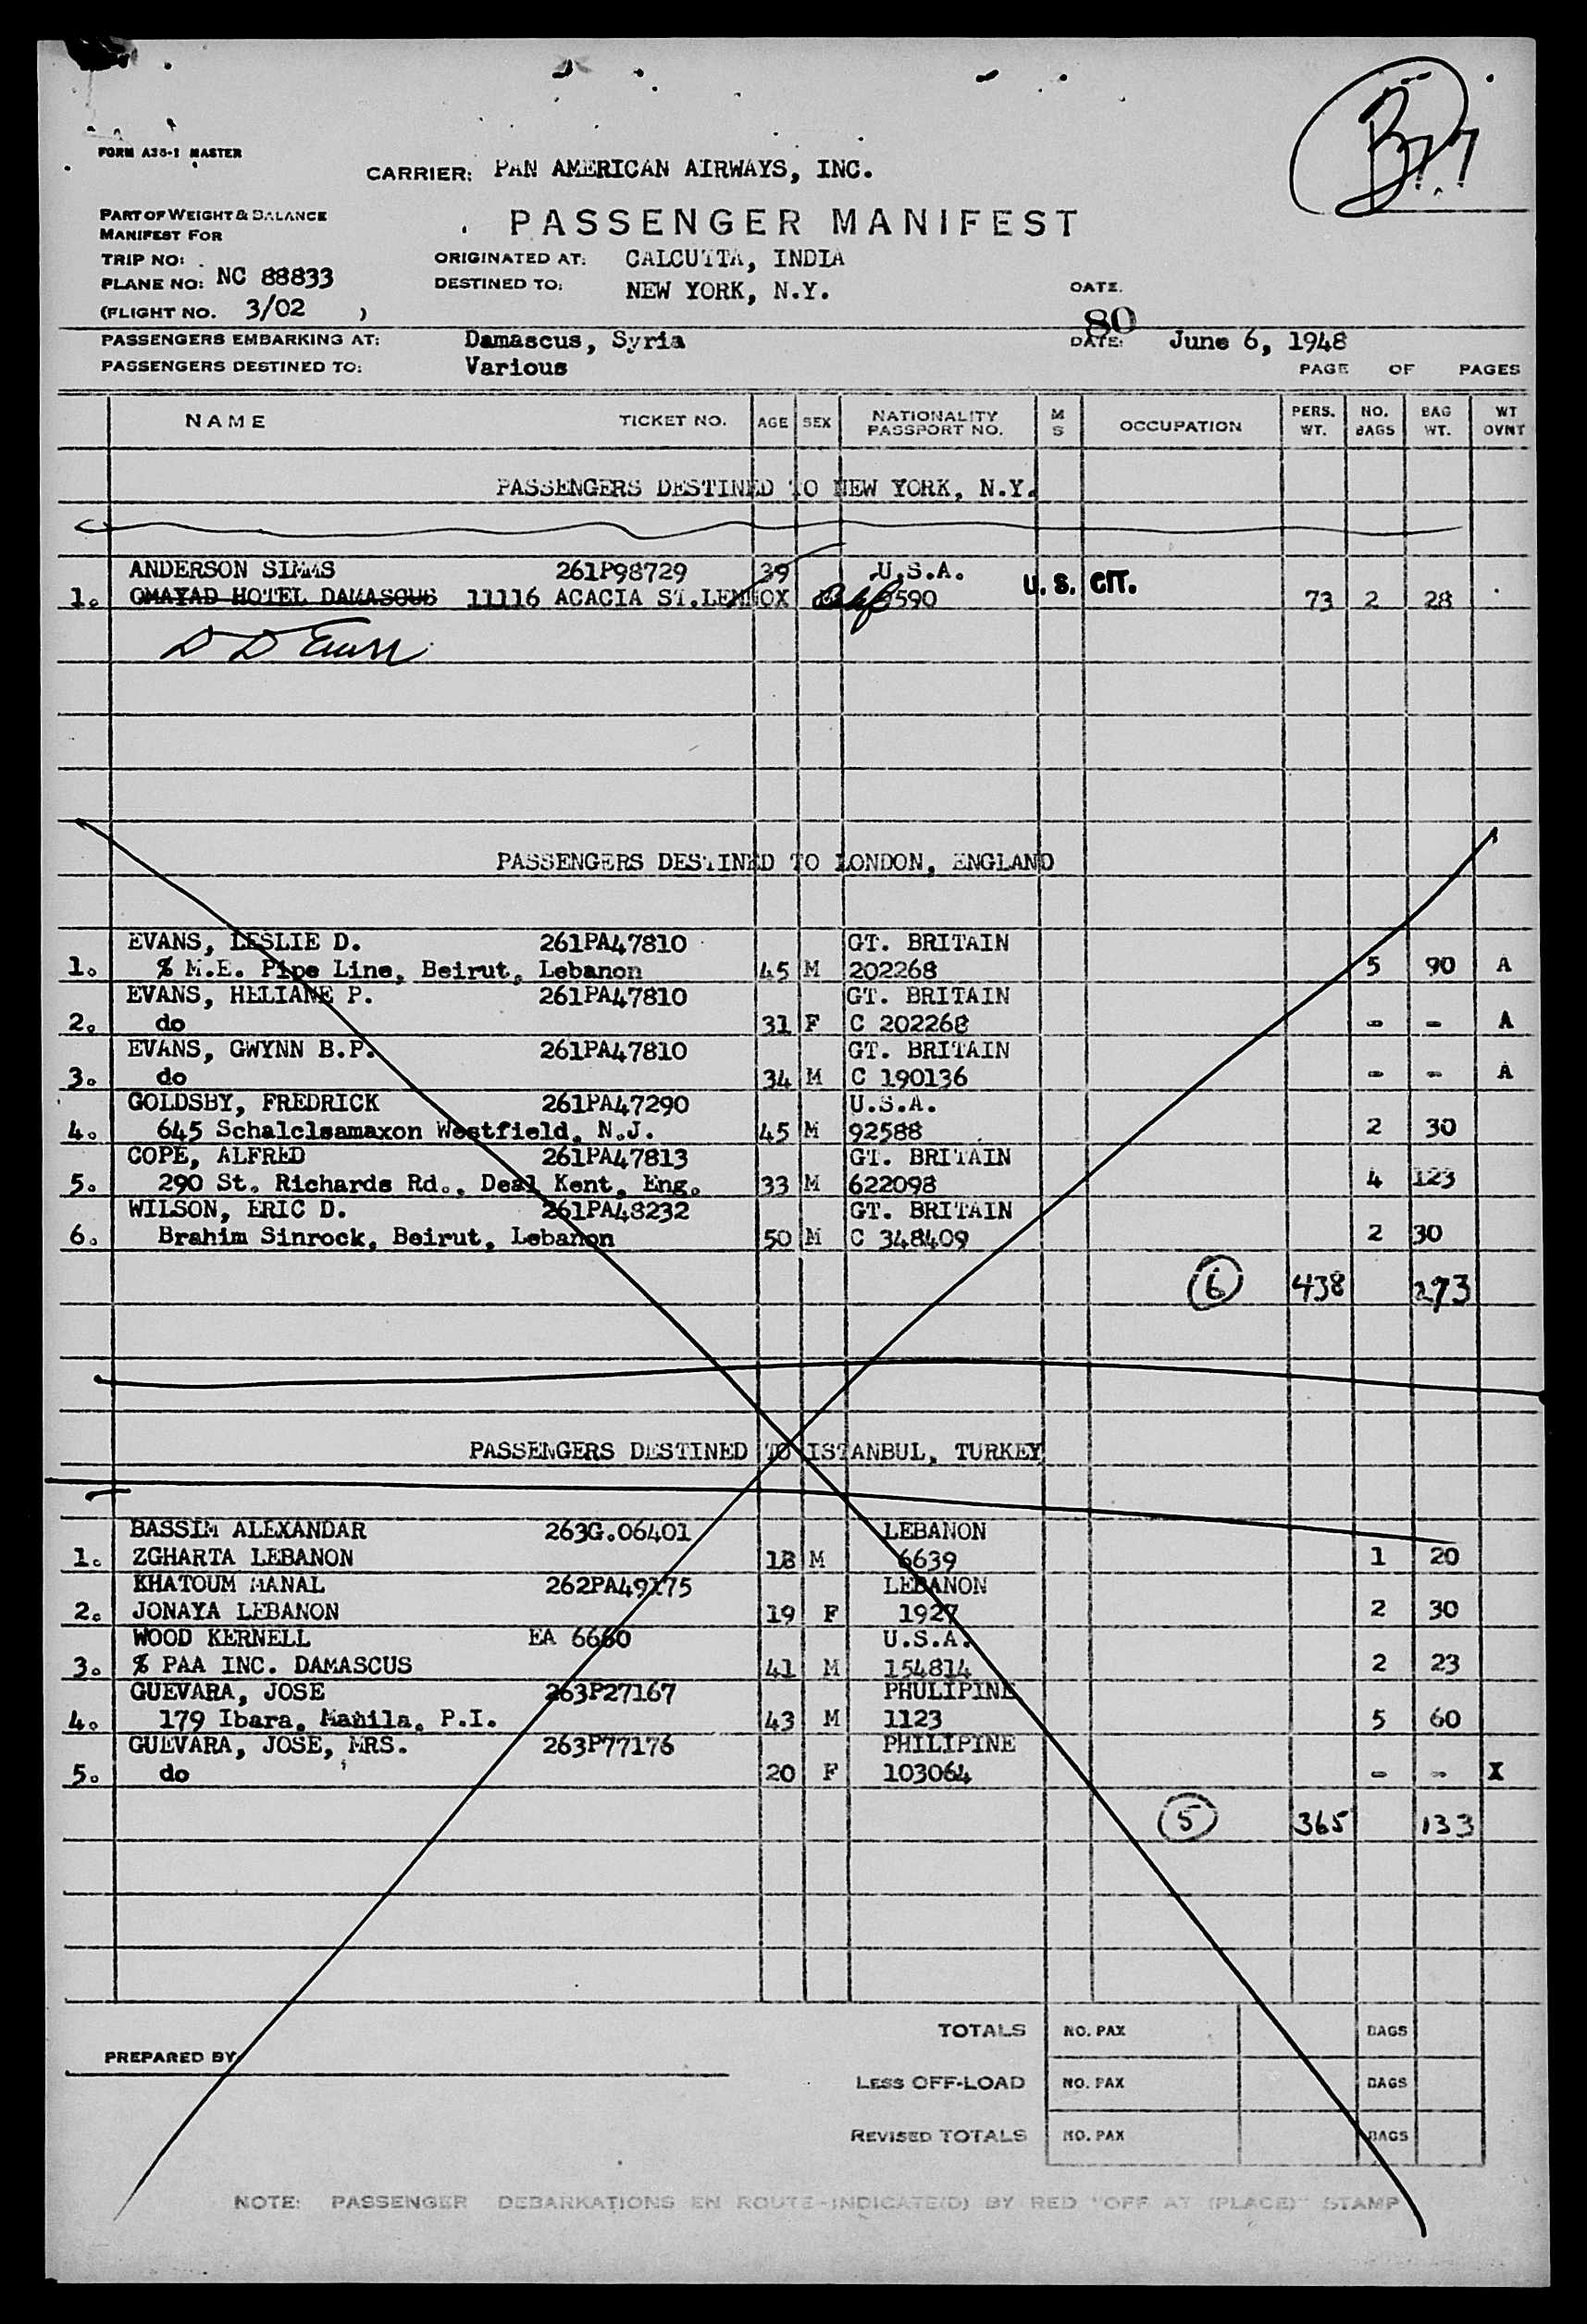 FORM A36-1 MASTER
CARRIER: PAN AMERICAN AIRWAYS, INC.
PART OF WEIGHT & BALANCE
MANIFEST FOR
PASSENGER MANIFEST
TRIP NO:
ORIGINATED AT: CALCUTTA, INDIA
PLANE NO: NC 88833
DESTINED TO: NEW YORK, N.Y.
DATE.
(FLIGHT NO. 3/02 )
80
PASSENGERS EMBARKING AT: Damascus, Syria DATE: June 6, 1948
PASSENGERS DESTINED TO: Various PAGE OF PAGES
NAME TICKET NO. AGE SEX NATIONALITY PASSPORT NO. M S OCCUPATION PERS. WT. NO. BAGS BAG WT. WT OVNT
PASSENGERS DESTINED TO NEW YORK, N.Y.
ANDERSON SIMMS 261P98729 39 U.S.A.
1. OMAYAD HOTEL DAMASCUS 11116 ACACIA ST.LENNOX 590 U.S. CIT. 73 2 28
PASSENGERS DESTINED TO LONDON, ENGLAND
EVANS, LESLIE D. 261PA47810 GT. BRITAIN
1. % M.E. Pipe Line, Beirut, Lebanon 45 M 202268 5 90 A
EVANS, HELIANE P. 261PA47810 GT. BRITAIN
2. do 31 F C 202268 - - A
EVANS, GWYNN B.P. 261PA47810 GT. BRITAIN
3. do 34 M C 190136 - - A
GOLDSBY, FREDRICK 261PA47290 U.S.A.
4. 645 Schalclsamaxon Westfield, N.J. 45 M 92588 2 30
COPE, ALFRED 261PA47813 GT. BRITAIN
5. 290 St. Richards Rd., Deal Kent, Eng. 33 M 622098 4 123
WILSON, ERIC D. 261PA48232 GT. BRITAIN
6. Brahim Sinrock, Beirut, Lebanon 50 M C 348409 2 30
6 438 273
PASSENGERS DESTINED TO ISTANBUL, TURKEY
BASSIM ALEXANDAR 263G.06401 LEBANON
1. ZGHARTA LEBANON 18 M 6639 1 20
KHATOUM MANAL 262PA49175 LEBANON
2. JONAYA LEBANON 19 F 1927 2 30
WOOD KERNELL EA 6660 U.S.A.
3. % PAA INC. DAMASCUS 41 M 154814 2 23
GUEVARA, JOSE 263P27167 PHULIPINE
4. 179 Ibara, Manila, P.I. 43 M 1123 5 60
GUEVARA, JOSE, MRS. 263P77176 PHILIPINE
5. do 20 F 103064 - - X
5 365 133
TOTALS NO. PAX BAGS
PREPARED BY
LESS OFF-LOAD NO. PAX BAGS
REVISED TOTALS NO. PAX BAGS
NOTE: PASSENGER DEBARKATIONS EN ROUTE-INDICATE(D) BY RED "OFF AT (PLACE)" STAMP